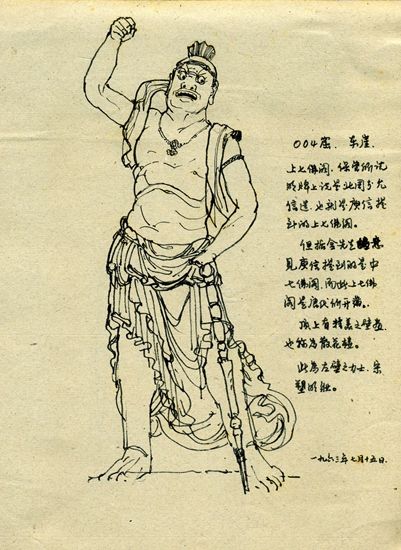 004窟. 东崖.
上七佛阁, 保管所说
明牌上说是北周李允
信造, 也就是庾信提
到的上七佛阁。
但据金先生意
见庾信提到的是中
七佛阁, 而此上七佛
阁是所开凿.
顶上有精美之壁画
也称为散花楼。
此为左壁之力士. 宋
塑明妆。
一九六三年七月十五日.